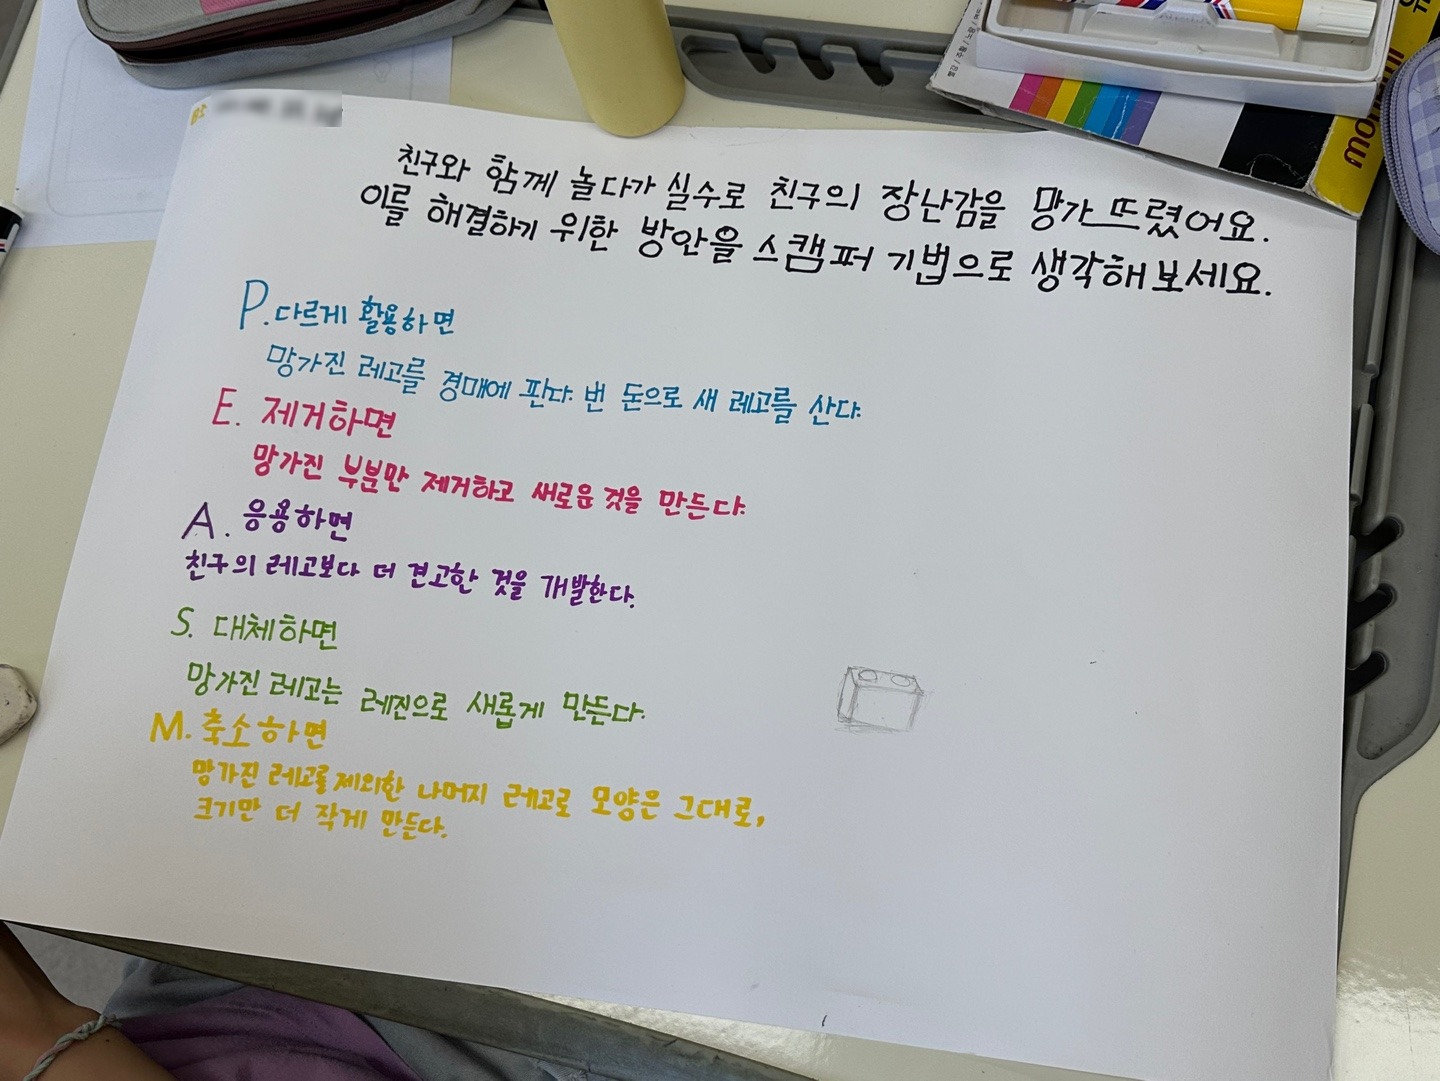 친구와 함께 놀다가 실수로 친구의 장난감을 망가뜨렸어요.
이를 해결하기 위한 방안을 스캠퍼 기법으로 생각해보세요.
P. 다르게 활용하면
망가진 레고를 경매에 판다. 번 돈으로 새 레고를 산다.
E. 제거하면
망가진 부분만 제거하고 새로운 것을 만든다.
A. 응용하면
친구의 레고보다 더 견고한 것을 개발한다.
S. 대체하면
망가진 레고는 레진으로 새롭게 만든다.
M. 축소하면
망가진 레고를 제외한 나머지 레고로 모양은 그대로,
크기만 더 작게 만든다.